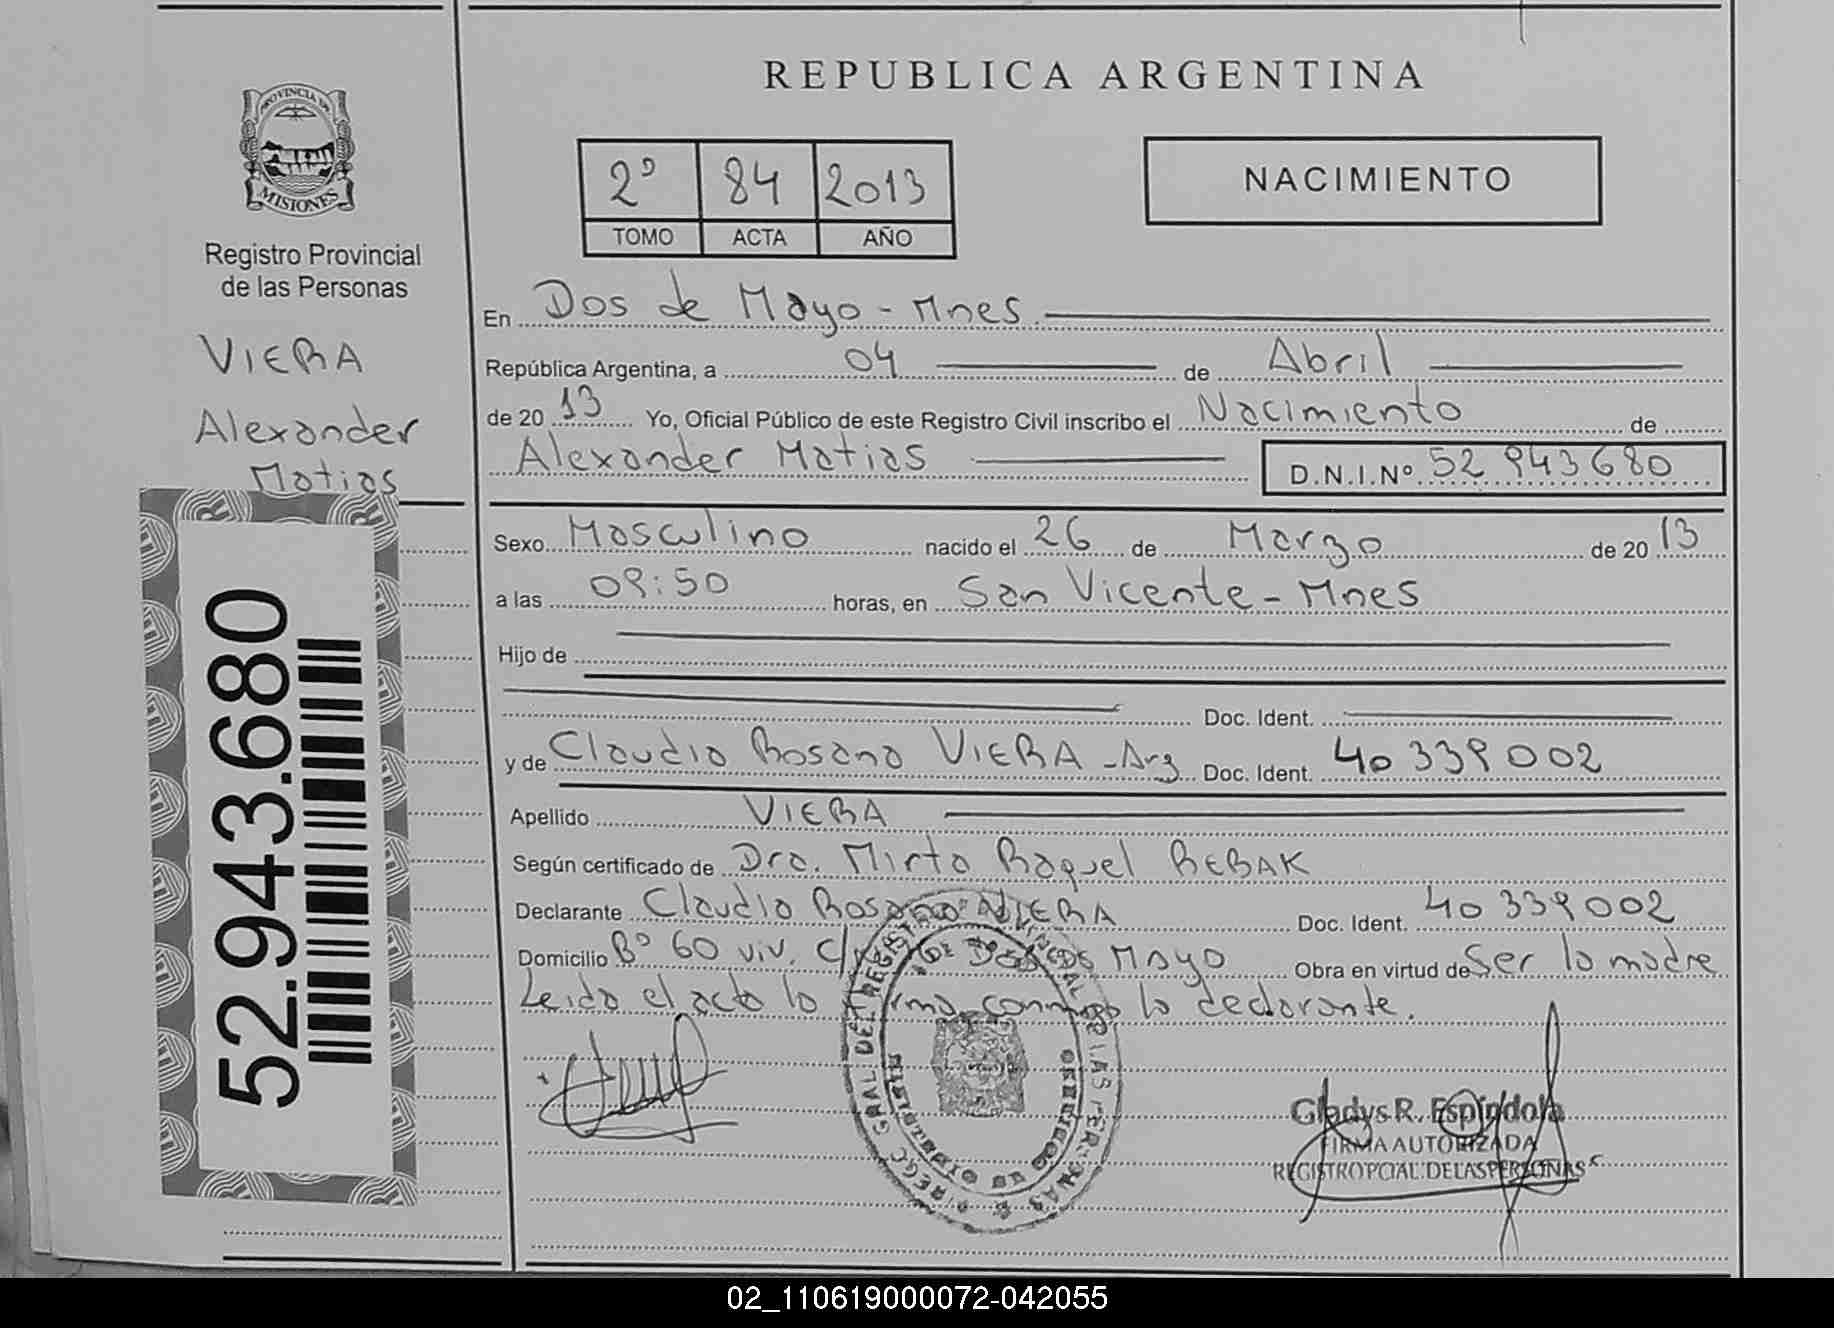 REPUBLICA ARGENTINA
PROVINCIA DE
MISIONES
Registro Provincial
de las Personas
VIERA
Alexander
Matias
52.943.680
2º 84 2013
TOMO ACTA AÑO
NACIMIENTO
En Dos de Mayo - Mnes.
República Argentina, a 04 de Abril
de 2013 Yo, Oficial Público de este Registro Civil inscribo el Nacimiento de
Alexander Matias D.N.I.Nº 52 943680
Sexo Masculino nacido el 26 de Marzo de 2013
a las 09:50 horas, en San Vicente - Mnes
Hijo de
Doc. Ident.
y de Claudia Rosana VIERA - Arg Doc. Ident. 40 339 002
Apellido VIERA
Según certificado de Dra. Mirta Raquel REBAK
Declarante Claudia Rosana VIERA Doc. Ident. 40 339 002
Domicilio Bº 60 viv. Dos de Mayo Obra en virtud de Ser la madre
Leida el acta la firma conmigo la declarante.
Gladys R. Espíndola
FIRMA AUTORIZADA
REGISTRO PCIAL. DE LAS PERSONAS
02_110619000072-042055